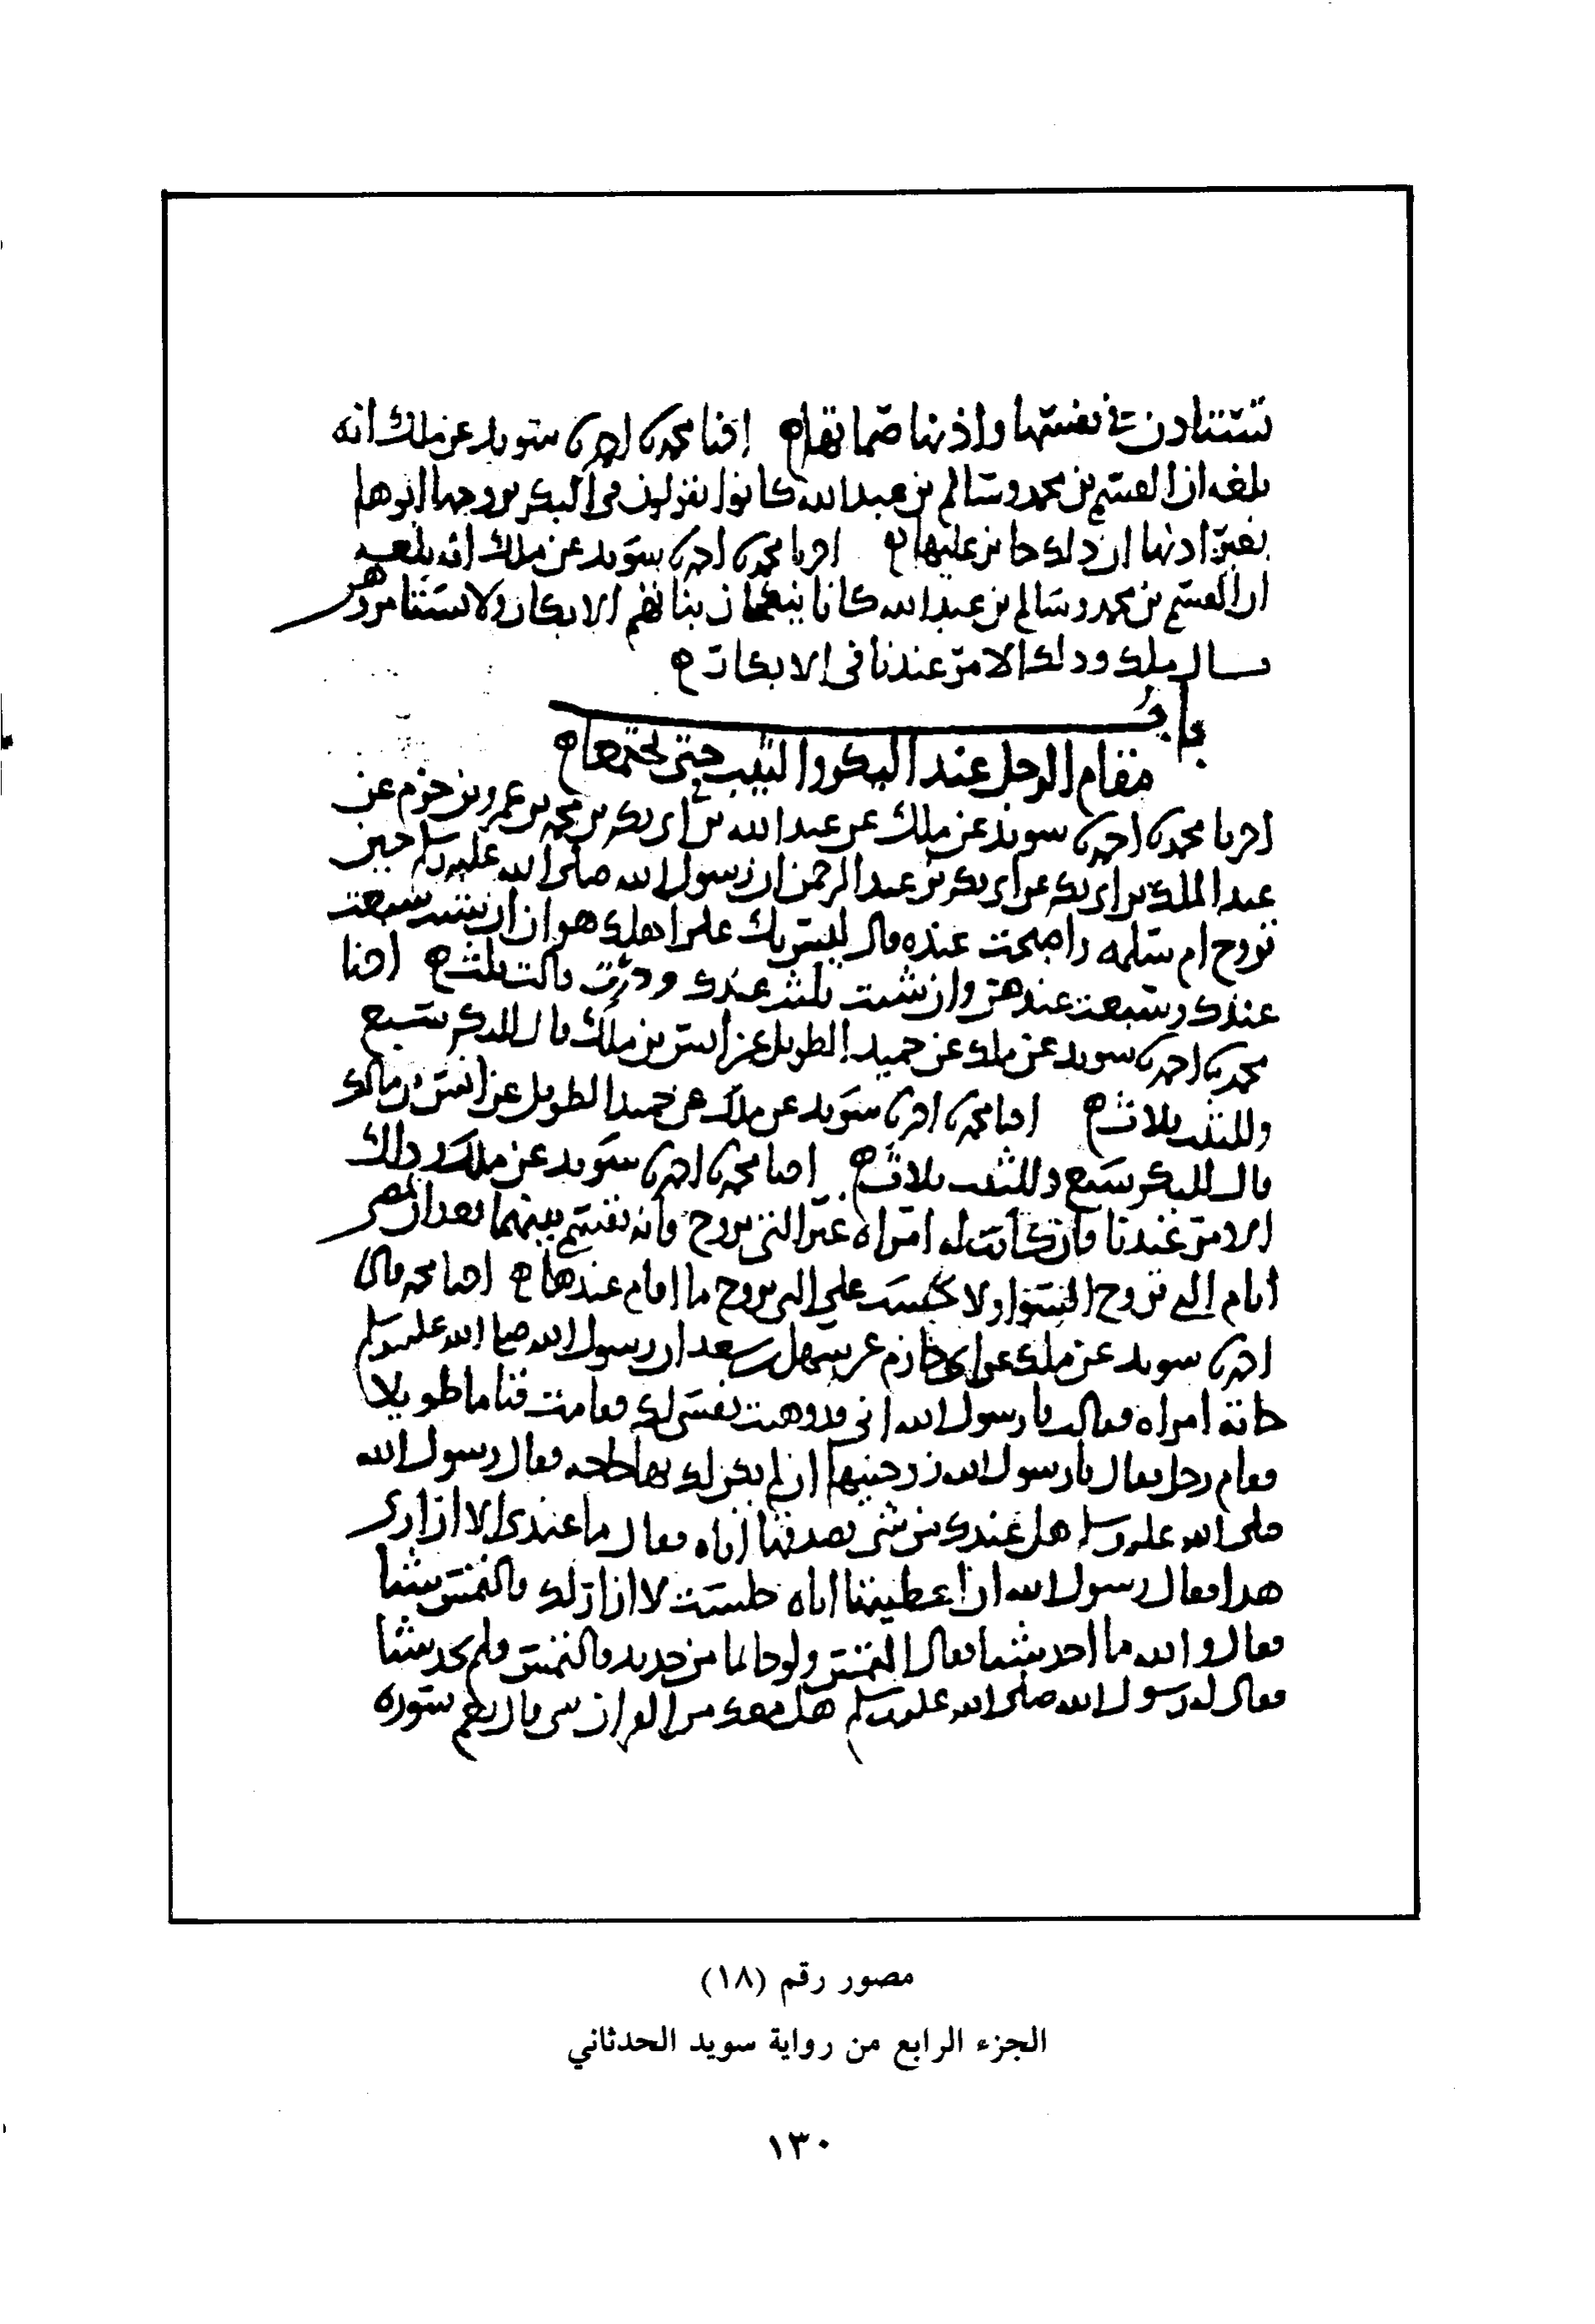 تستاذن في نفسها واذنها صماتها ه اخبنا محمد نا احمد نا سويد عن ملك انه
بلغه ان القسم بن محمد وسالم بن عبد الله كانوا يقولون في البكر يزوجها ابوها
بغير اذنها ان ذلك جايز عليها ه اخبرنا محمد نا احمد نا سويد عن ملك انه بلغه
ان القسم بن محمد وسالم بن عبد الله كانا ينكحان بناتهم الابكار ولا يستامروهن
قال ملك وذلك الامر عندنا في الابكار ه
باب
مقام الرجل عند البكر والثيب حتى
اخبرنا محمد نا احمد نا سويد عن ملك عن عبد الله بن ابي بكر بن محمد بن عمرو بن حزم عن
عبد الملك بن ابي بكر عن ابي بكر بن عبد الرحمن ان رسول الله صلى الله عليه وسلم حين
تزوج ام سلمه واصبحت عنده قال ليس بك على اهلك هوان ان شيت سبعت
عندك وسبعت عندهن وان شيت ثلثت عندك ودرت قالت ثلث ه اخبنا
محمد نا احمد نا سويد عن ملك عن حميد الطويل عن انس بن ملك قال للبكر سبع
وللثيب ثلاث ه اخبنا محمد نا احمد نا سويد عن ملك عن حميد الطويل عن انس بن مالك
قال للبكر سبع وللثيب ثلاث ه اخبنا محمد نا احمد نا سويد عن ملك وذلك
الامر عندنا فان كانت له امراه غير التي تزوج فانه يقسم بينهما بعد ان تمضي
ايام التي تزوج السوا ولا يحسب على التي تزوج ما اقام عندها ه اخبنا محمد قال نا
احمد نا سويد عن ملك عن ابي حازم عن سهل بن سعد ان رسول الله صلى الله عليه وسلم
جاته امراه فقالت يا رسول الله اني قد وهبت نفسي لك فقامت قياما طويلا
فقام رجل فقال يا رسول الله زوجنيها ان لم يكن لك بها حاجه فقال رسول الله
صلى الله عليه وسلم هل عندك من شي تصدقها اياه فقال ما عندي الا ازاري
هذا فقال رسول الله ان اعطيتها اياه جلست لا ازار لك فالتمس شيا
فقال والله ما اجد شيا فقال التمس ولو خاتما من حديد فالتمس فلم يجد شيا
فقال له رسول الله صلى الله عليه وسلم هل معك من القران شي قال نعم سوره
مصور رقم (١٨)
الجزء الرابع من رواية سويد الحدثاني
١٣٠